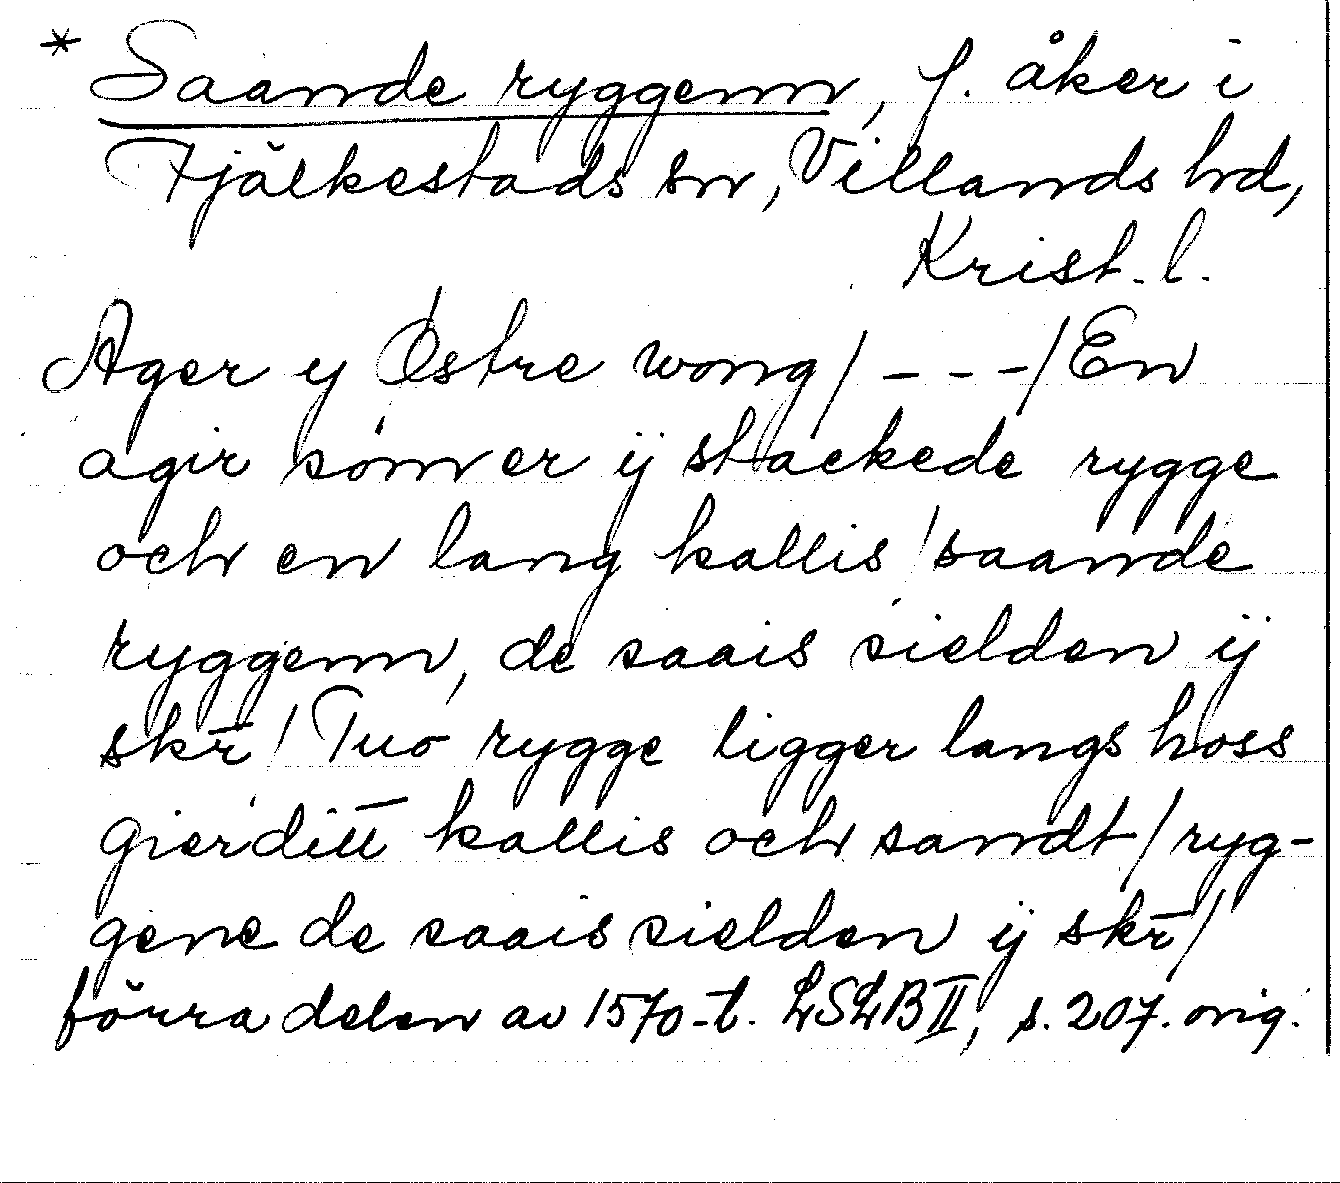 * Saande ryggenn, f. åker i
Fjälkestads sn, Villands hd,
Krist. l.
Ager y Østre wong / - - - / En
agir sømer ij stackede rygge
och en lang kallis / saande
ryggenn, de saais sielden ij
skr̄ / Tuo rygge ligger langs hoss
gierditt kallis och sandt / ryg-
gene de saais sielden ij skr̄ /
förra delen av 1570-t. LSLB II, s. 207. orig.